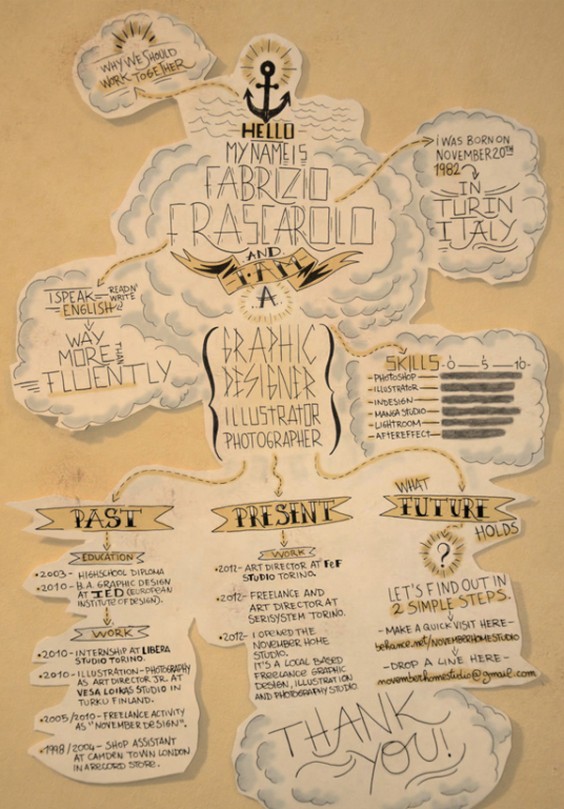 WHY WE SHOULD
WORK TOGETHER
HELLO
MY NAME IS
FABRIZIO
FRASCAROLO
AND
I AM
A
I WAS BORN ON
NOVEMBER 20TH
1982
IN
TURIN
ITALY
I SPEAK READ N'
ENGLISH WRITE
WAY
MORE THAN
FLUENTLY
GRAPHIC
DESIGNER
ILLUSTRATOR
PHOTOGRAPHER
SKILLS 0 5 10
PHOTOSHOP
ILLUSTRATOR
INDESIGN
MANGA STUDIO
LIGHTROOM
AFTEREFFECT
PAST
EDUCATION
•2003- HIGHSCHOOL DIPLOMA
•2010- B.A. GRAPHIC DESIGN
AT IED (EUROPEAN
INSTITUTE OF DESIGN).
WORK
•2010- INTERNSHIP AT LIBERA
STUDIO TORINO.
•2010- ILLUSTRATION-PHOTOGRAPHY
AS ART DIRECTOR JR. AT
VESA LOIKAS STUDIO IN
TURKU FINLAND.
•2005/2010- FREELANCE ACTIVITY
AS "NOVEMBER DESIGN".
•1998/2004- SHOP ASSISTANT
AT CAMDEN TOWN LONDON
IN A RECORD STORE.
PRESENT
WORK
•2012- ART DIRECTOR AT FeF
STUDIO TORINO.
•2012- FREELANCE AND
ART DIRECTOR AT
SERISYSTEM TORINO.
•2012- I OPENED THE
NOVEMBER HOME
STUDIO.
IT'S A LOCAL BASED
FREELANCE GRAPHIC
DESIGN, ILLUSTRATION
AND PHOTOGRAPHY STUDIO
WHAT
FUTURE
HOLDS
?
LET'S FIND OUT IN
2 SIMPLE STEPS.
- MAKE A QUICK VISIT HERE -
behance.net/NOVEMBERHOMESTUDIO
- DROP A LINE HERE -
novemberhomestudio@gmail.com
THANK
YOU!